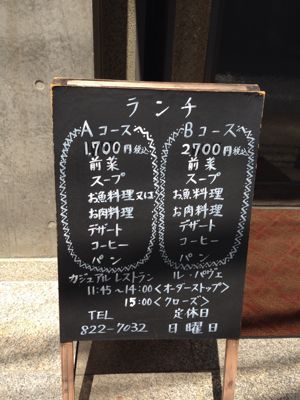 ランチ
Aコース
1,700円税込
前菜
スープ
お魚料理又は
お肉料理
デザート
コーヒー
パン
Bコース
2,700円税込
前菜
スープ
お魚料理
お肉料理
デザート
コーヒー
パン
カジュアルレストラン ル・パッフェ
11:45〜14:00<オーダーストップ>
15:00<クローズ>
TEL 定休日
822-7032 日曜日